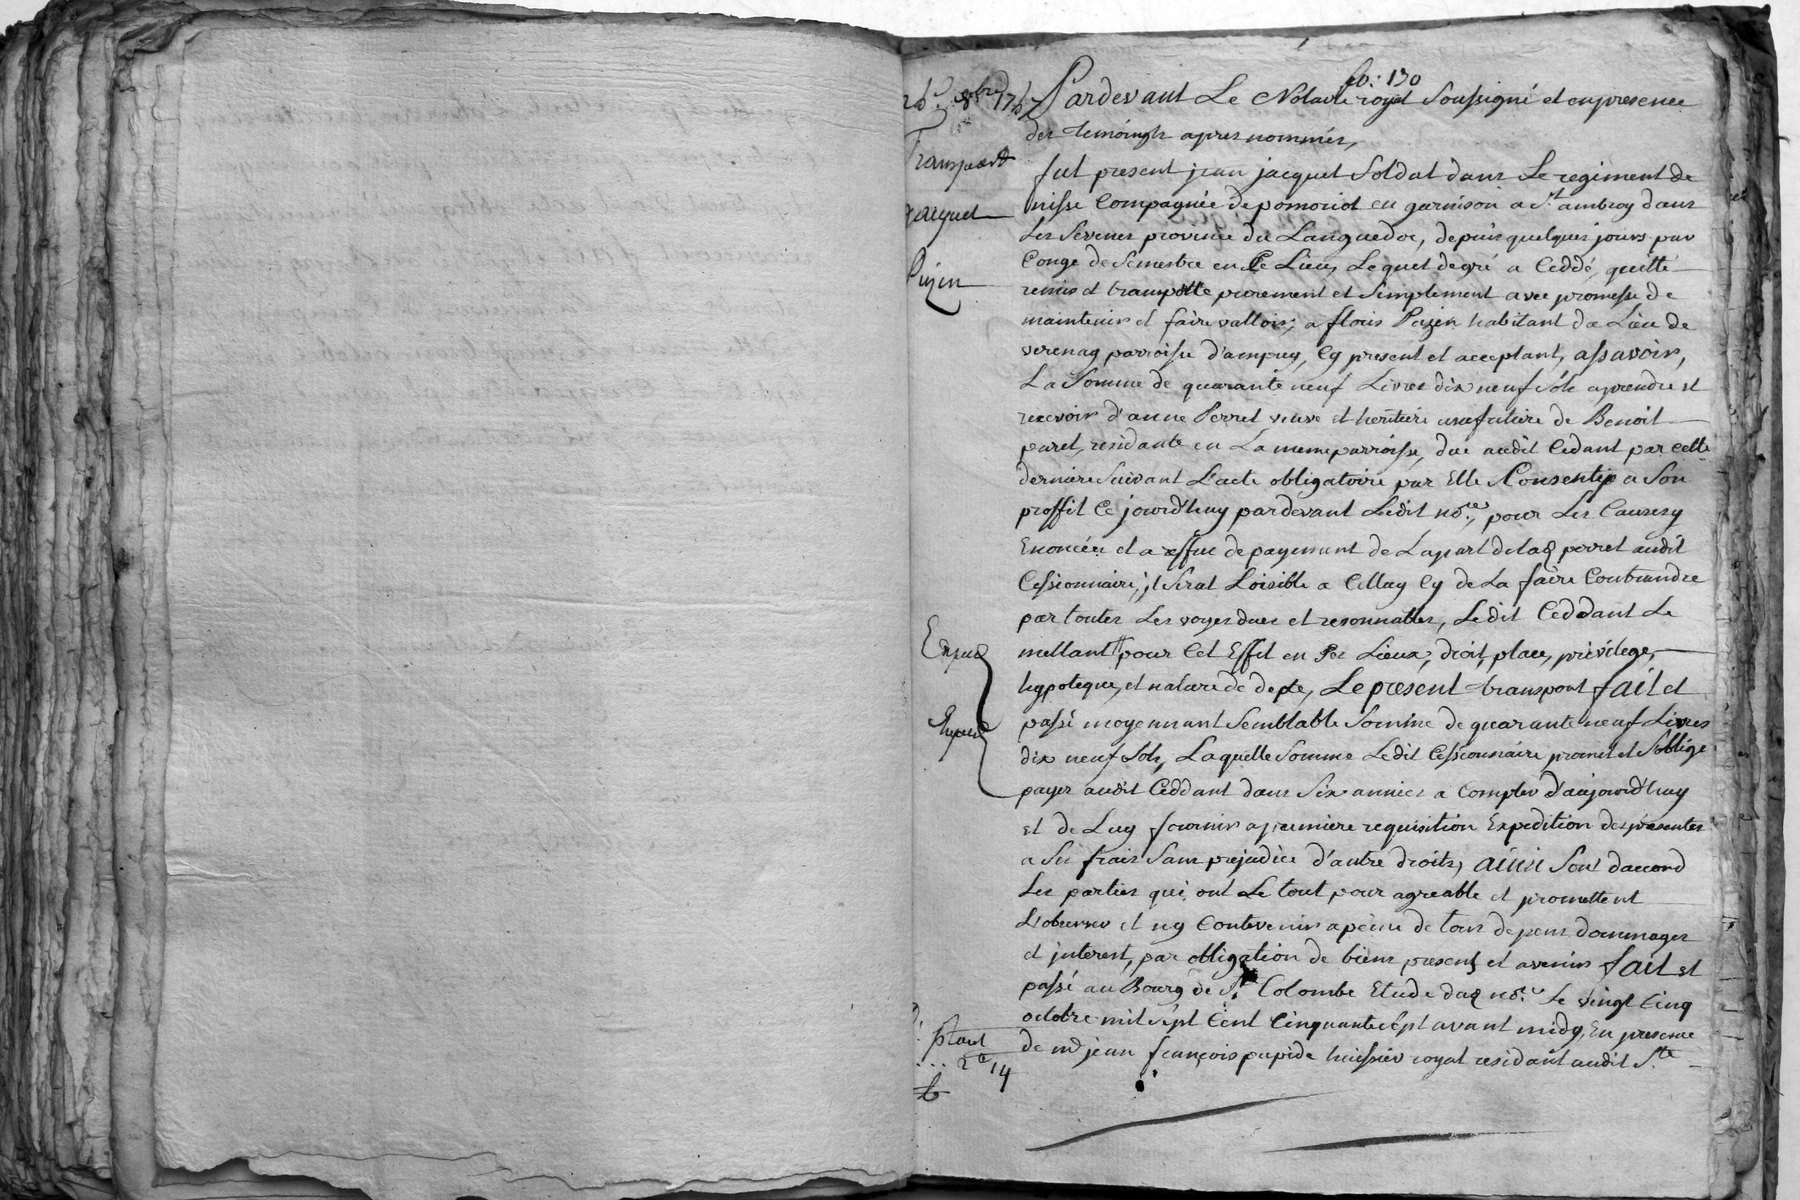 fo: 130
25e 8bre 1757
Pardevant Le Notaire royal Soussigné et en presence
des temoingts apres nommés,
Transport
fut present jean jacquet Soldat dans Le regiment de
nisse Compagniée de pomoriol en garnison a St ambroy dans
jacquet
Les Sevenes province du Languedoc, depuis quelques jours par
Congé de Semestre en Ce Lieu, Lequel de gré a Ceddé, quitté
Pizin
remis et transporté purement et Simplement avec promesse de
maintenir et faire valloir, a flouis Pazen habitant da Lieu de
verenay parroisse d'ampuy, Cy present et acceptant, assavoir,
La Somme de quarante neuf Livres dix neuf Sols a prendre et
recevoir d'anne Perret veuve et heritiere usufutiere de Benoit
paret, residante en La meme parroisse, due audit Cedant par cette
derniere Suivant L'acte obligatoire par Elle Consentie a Son
proffit Ce jourd'huy pardevant Ledit nore, pour Les Causes y
Enoncées et a deffue de payement de La part de lad perret audit
Cessionnaire, jl Serat Loisible a Celluy Cy de La faire Contraindre
par toutes Les voyes dues et resonnables, Ledit Ceddant Le
Expedié
mettant pour Cet Effet en Ses Lieux, droit, place, privilege,
hypoteque, et nature de depte, Le present transport fait et
Expedié
passé moyennant Semblable Somme de quarante neuf Livres
dix neuf Sols, Laquelle Somme Ledit Cessionnaire promet et S'oblige
payer audit Ceddant dans Six années a Compter d'aujourd'huy
et de Luy fournir a premiere requisition Expedition des presentes
a Ses frais Sans prejudice d'autre droits, ainsi Sont daccord
Les parties qui ont Le tout pour agreable et promettent
L'observer et ny Contrevenir a peine de tous depens dommages
et interest, par obligation de biens present et avenir fait et
passé au Bourg de Ste Colombe Etude dud nore Le vingt Cinq
octobre mil sept Cent Cinquante Sept avant midy, En presence
de me jean françois pupide huissier royal residant audit Ste